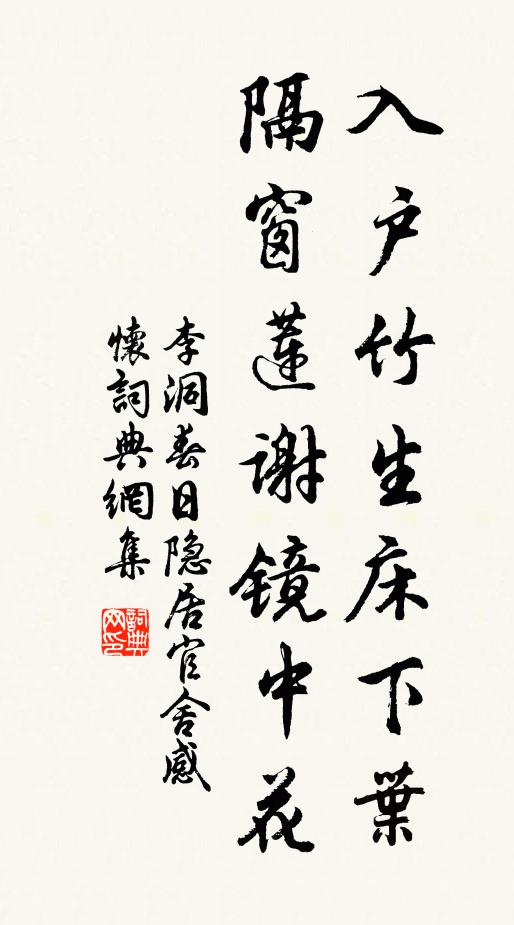 入户竹生床下葉
隔窗蓮謝镜中花
李洞春日隐居官舍感
懷詞典網集
詞典网印